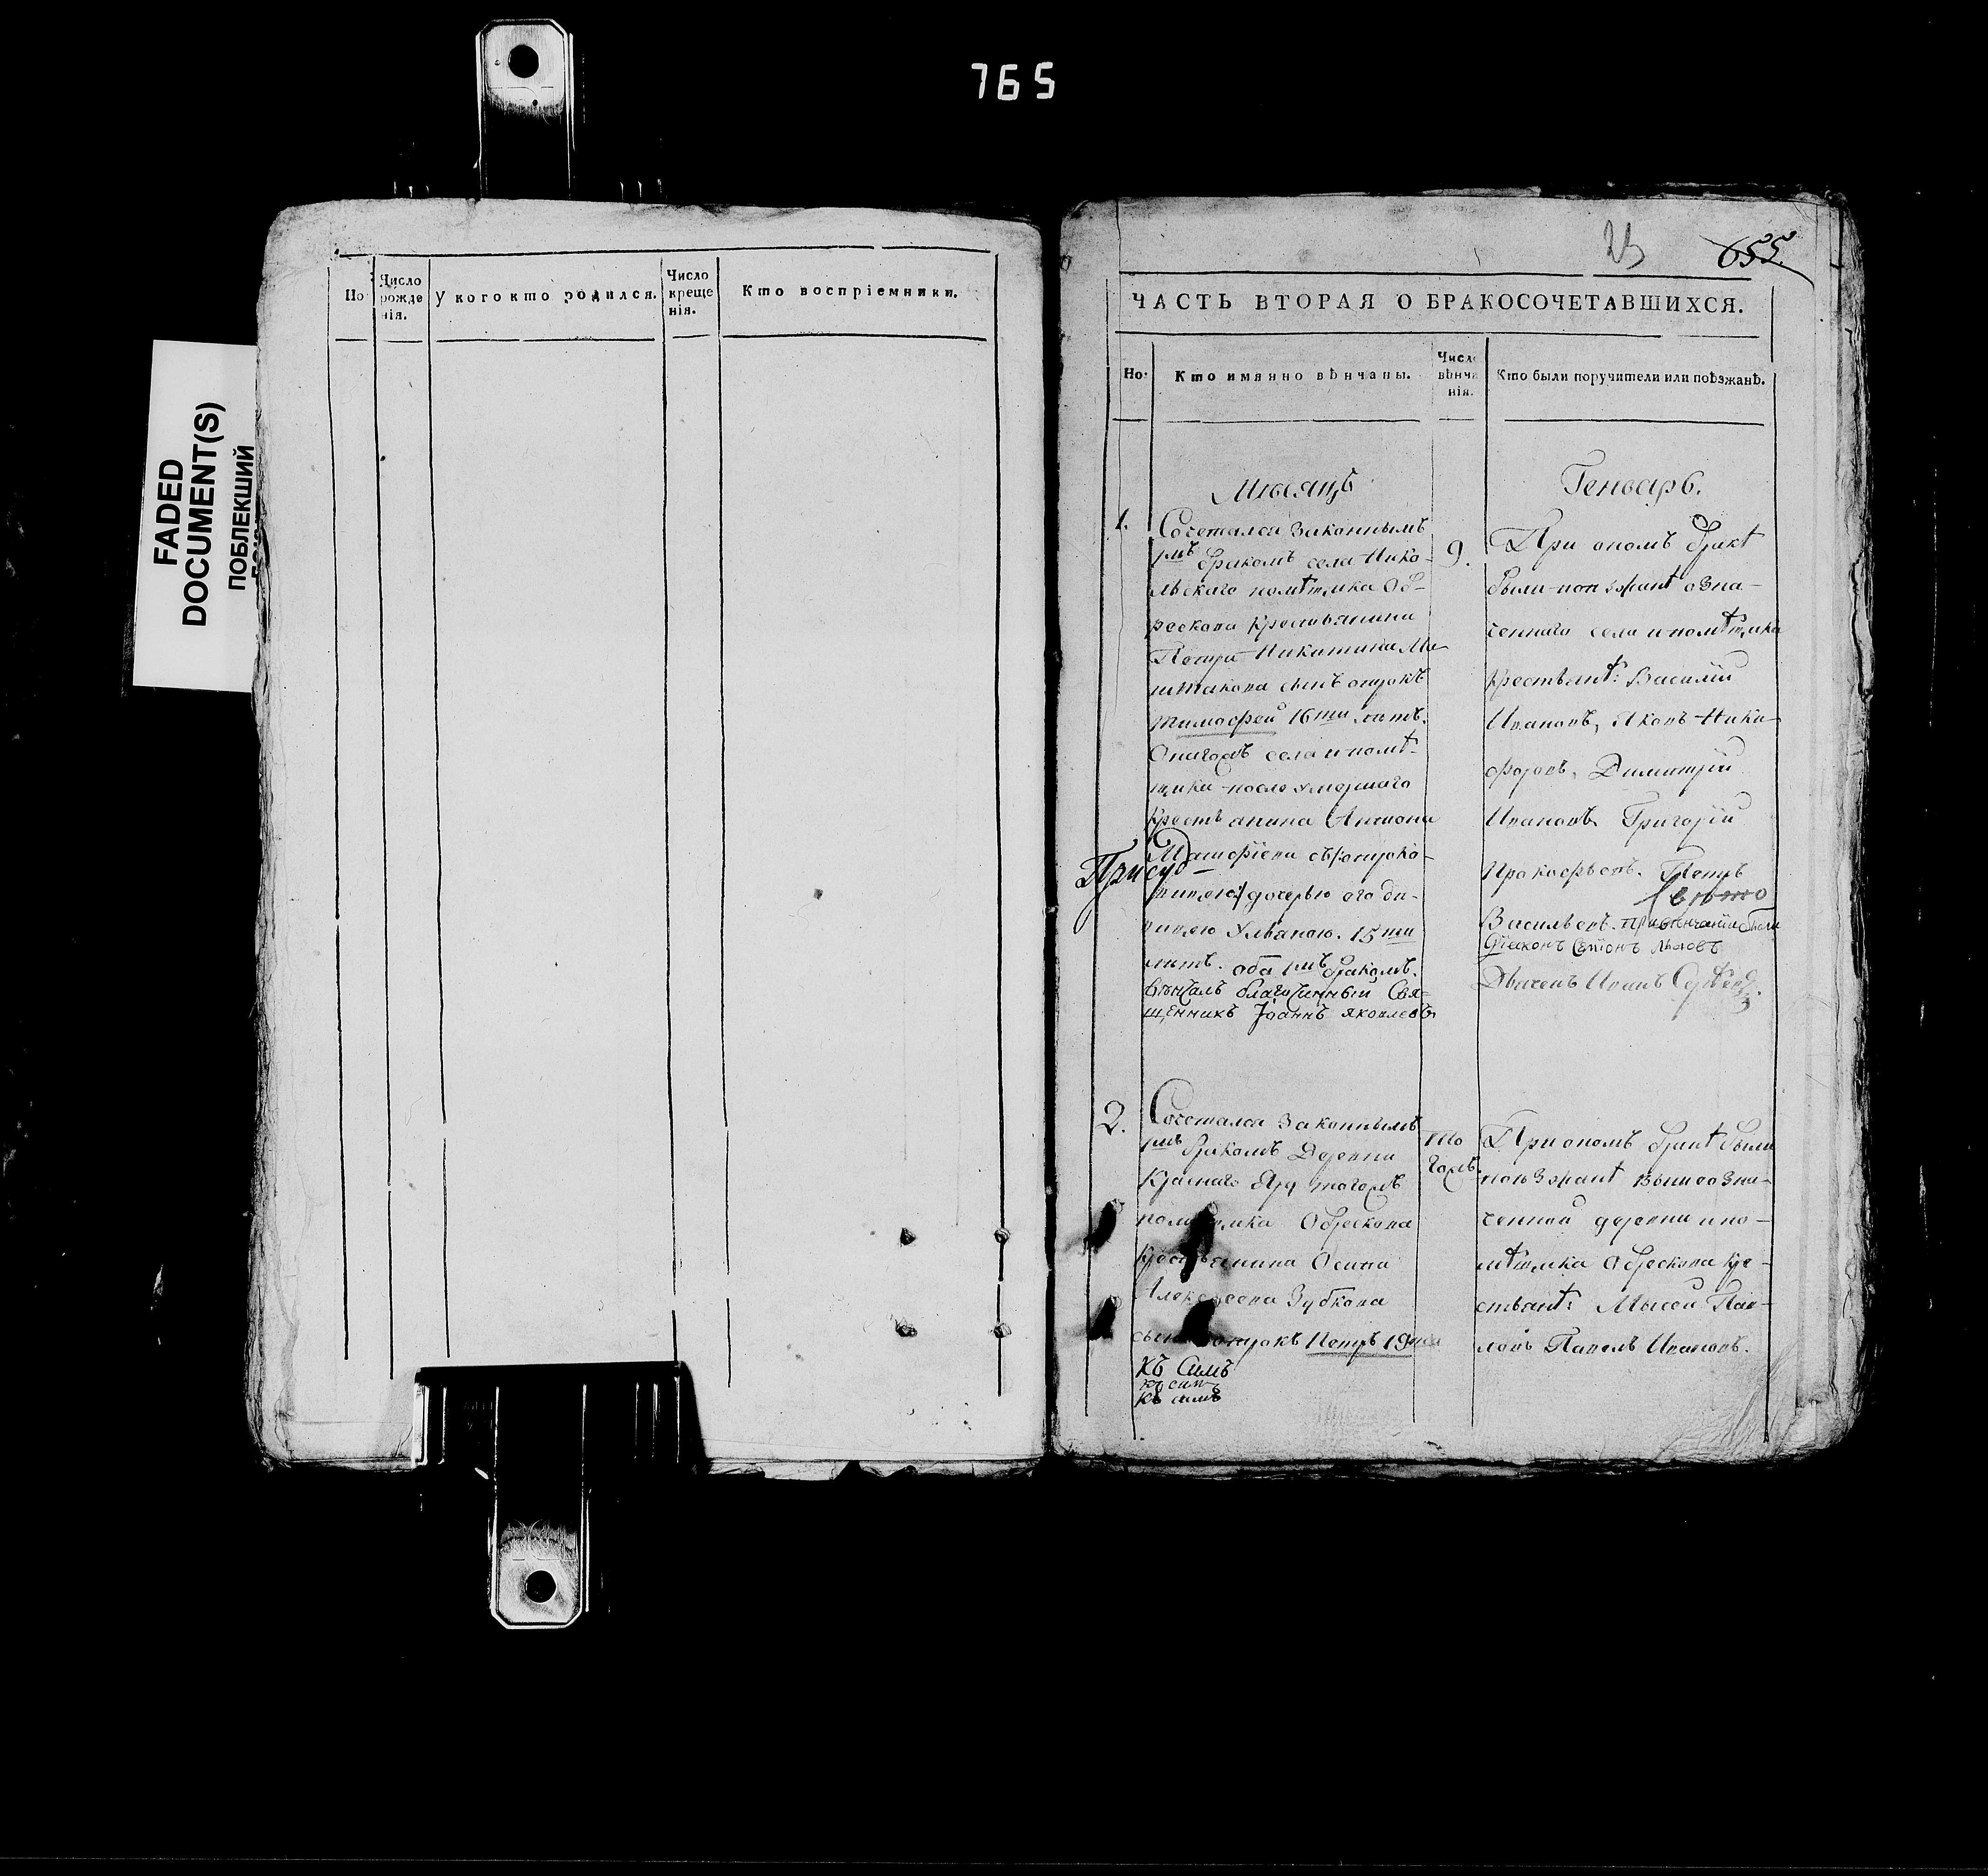 765
FADED
DOCUMENT(S)
ПОБЛЕКШИЙ
Но
Число рожде нія.
у кого кто родился.
Число креще нія.
Кто воспріемники.
23
655.
ЧАСТЬ ВТОРАЯ О БРАКОСОЧЕТАВШИХСЯ.
Но:
Кто имянно вѣнчаны.
Числ вѣнча нія.
Кто были поручители или поѣзжанѣ.
Мѣсяцъ
Генварь.
1.
Сочетался законнымъ
1мъ бракомъ села Нико-
льскаго помѣщика Об-
рескова крестьянина
Петра Никитина Ми
сынъ отрокъ
Тимофей 16ти лѣтъ.
Онагожъ села и помѣ-
щика после умершаго
крестьянина
дочерью его дѣ-
вицею Ульяною. 15ти
лѣтъ. оба 1мъ бракомъ.
вѣнчалъ благочинный Свя-
щенникъ Іоаннъ Яковлевъ
9.
При ономъ бракѣ
были поезжанѣ озна-
ченнаго села и помѣщика
крестьянѣ: Василій
Ивановъ, Яковъ Ники-
форовъ, Димитрій
Ивановъ Григорій
Прокофьевъ. Петръ
Васильевъ. при вѣнчаніи были
Діаконъ
Дьячекъ Иванъ Сергѣевъ.
2.
Сочетался законнымъ
1мъ бракомъ Деревни
Краснаго Яру тогожъ
помѣщика Обрескова
крестьянина Осипа
Алексеева Зубкова
сынъ отрокъ Петръ 19ти
къ симъ
къ сим
къ симъ
то
гожъ
При ономъ бракѣ были
поезжанѣ вышеозна-
ченной деревни и по-
мѣщика Обрескова кре-
стьянѣ: Мысей Пав-
ловъ Павелъ Ивановъ.